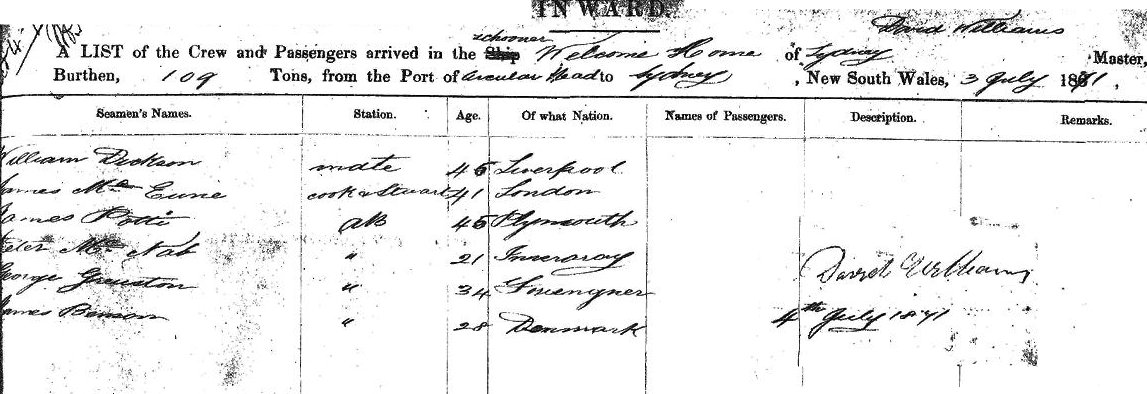 INWARD.
schooner David Williams
A LIST of the Crew and Passengers arrived in the Ship Welcome Home of Sydney , Master,
Burthen, 109 Tons, from the Port of Circular Head to Sydney , New South Wales, 3 July 1871 ,
Seamen's Names. Station. Age. Of what Nation. Names of Passengers. Description. Remarks.
William Dickson mate 45 Liverpool
James Mc Eune cook & Steward 41 London
James Potts AB 45 Plymouth
Peter Mc Nab " 21 Inveraray
George " 34
James Benson " 28 Denmark
David Williams
4th July 1871